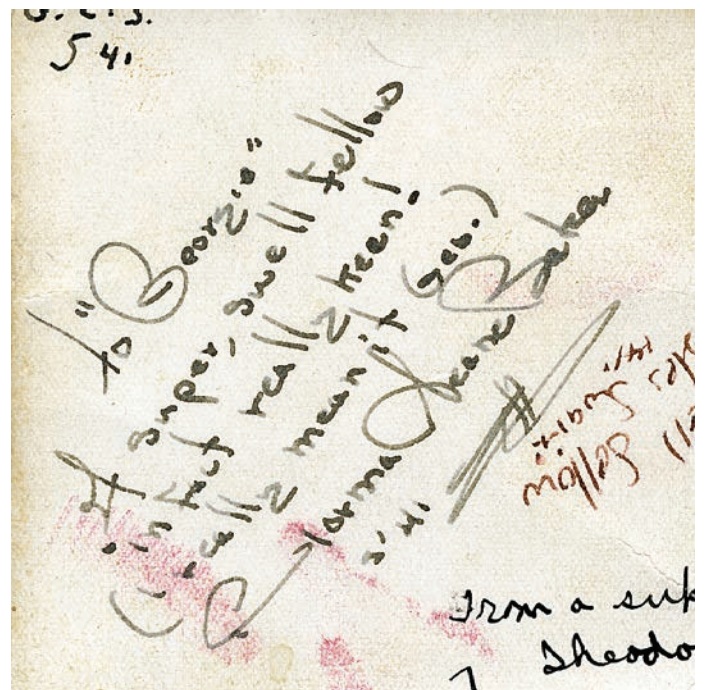 S 41.
To "Georgie"
A super, swell fellow
in fact really keen!
(I really mean it Geo.)
Norma Jeane Baker
S'41
From a
Theodo